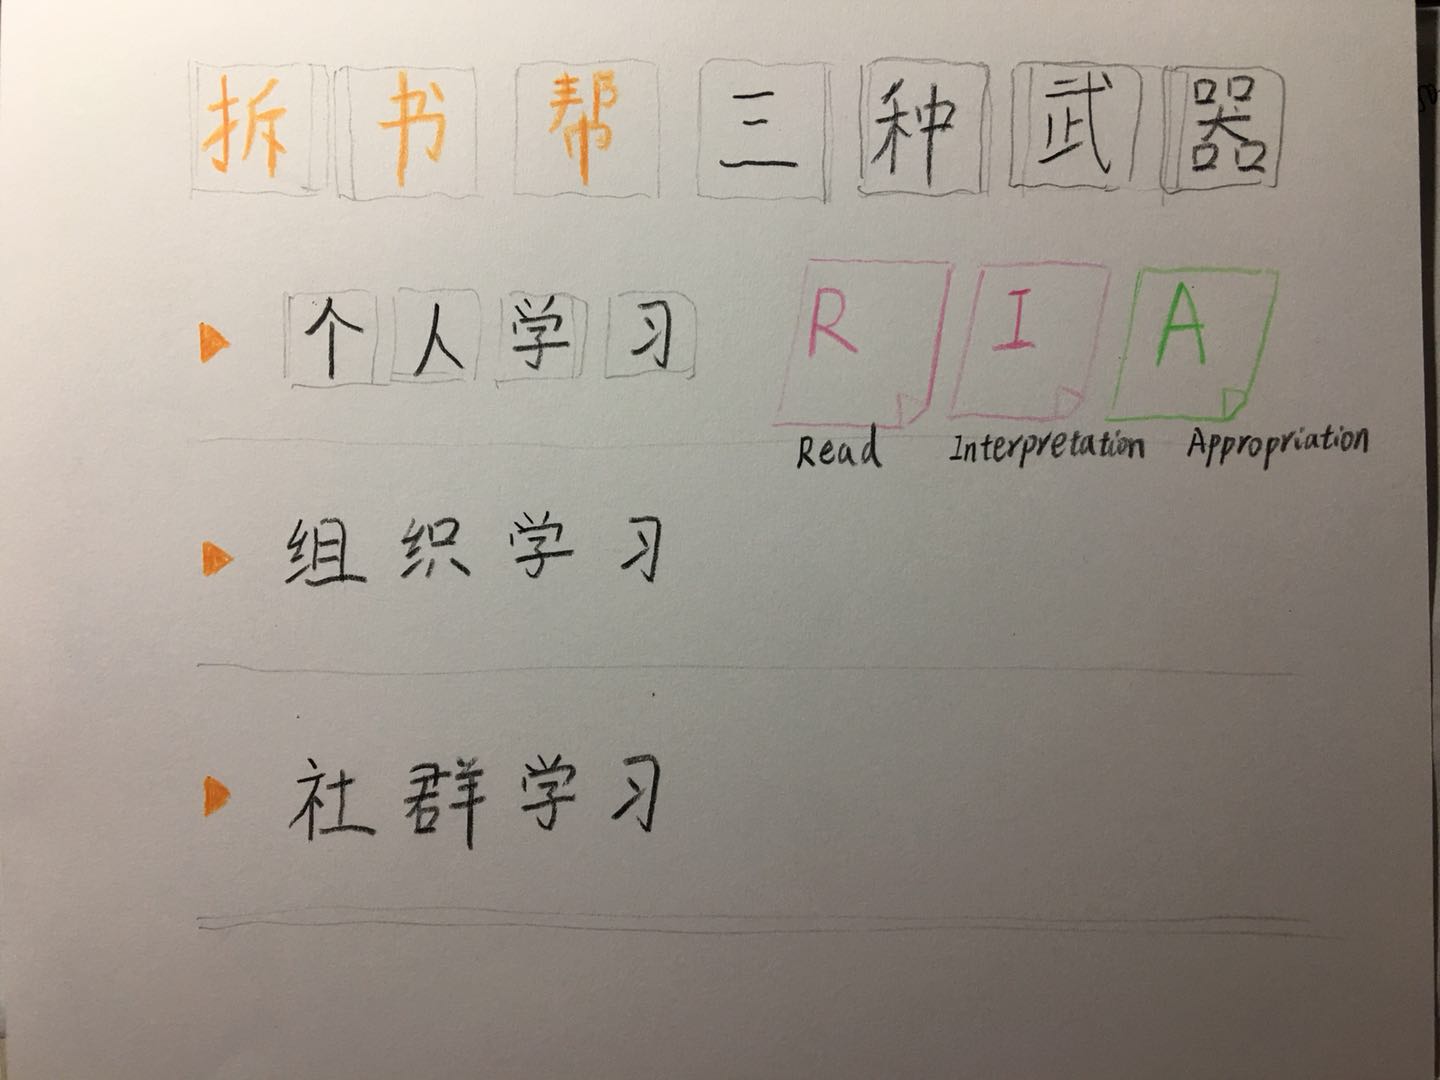 拆书帮三种武器
个人学习 R I A
Read Interpretation Appropriation
组织学习
社群学习